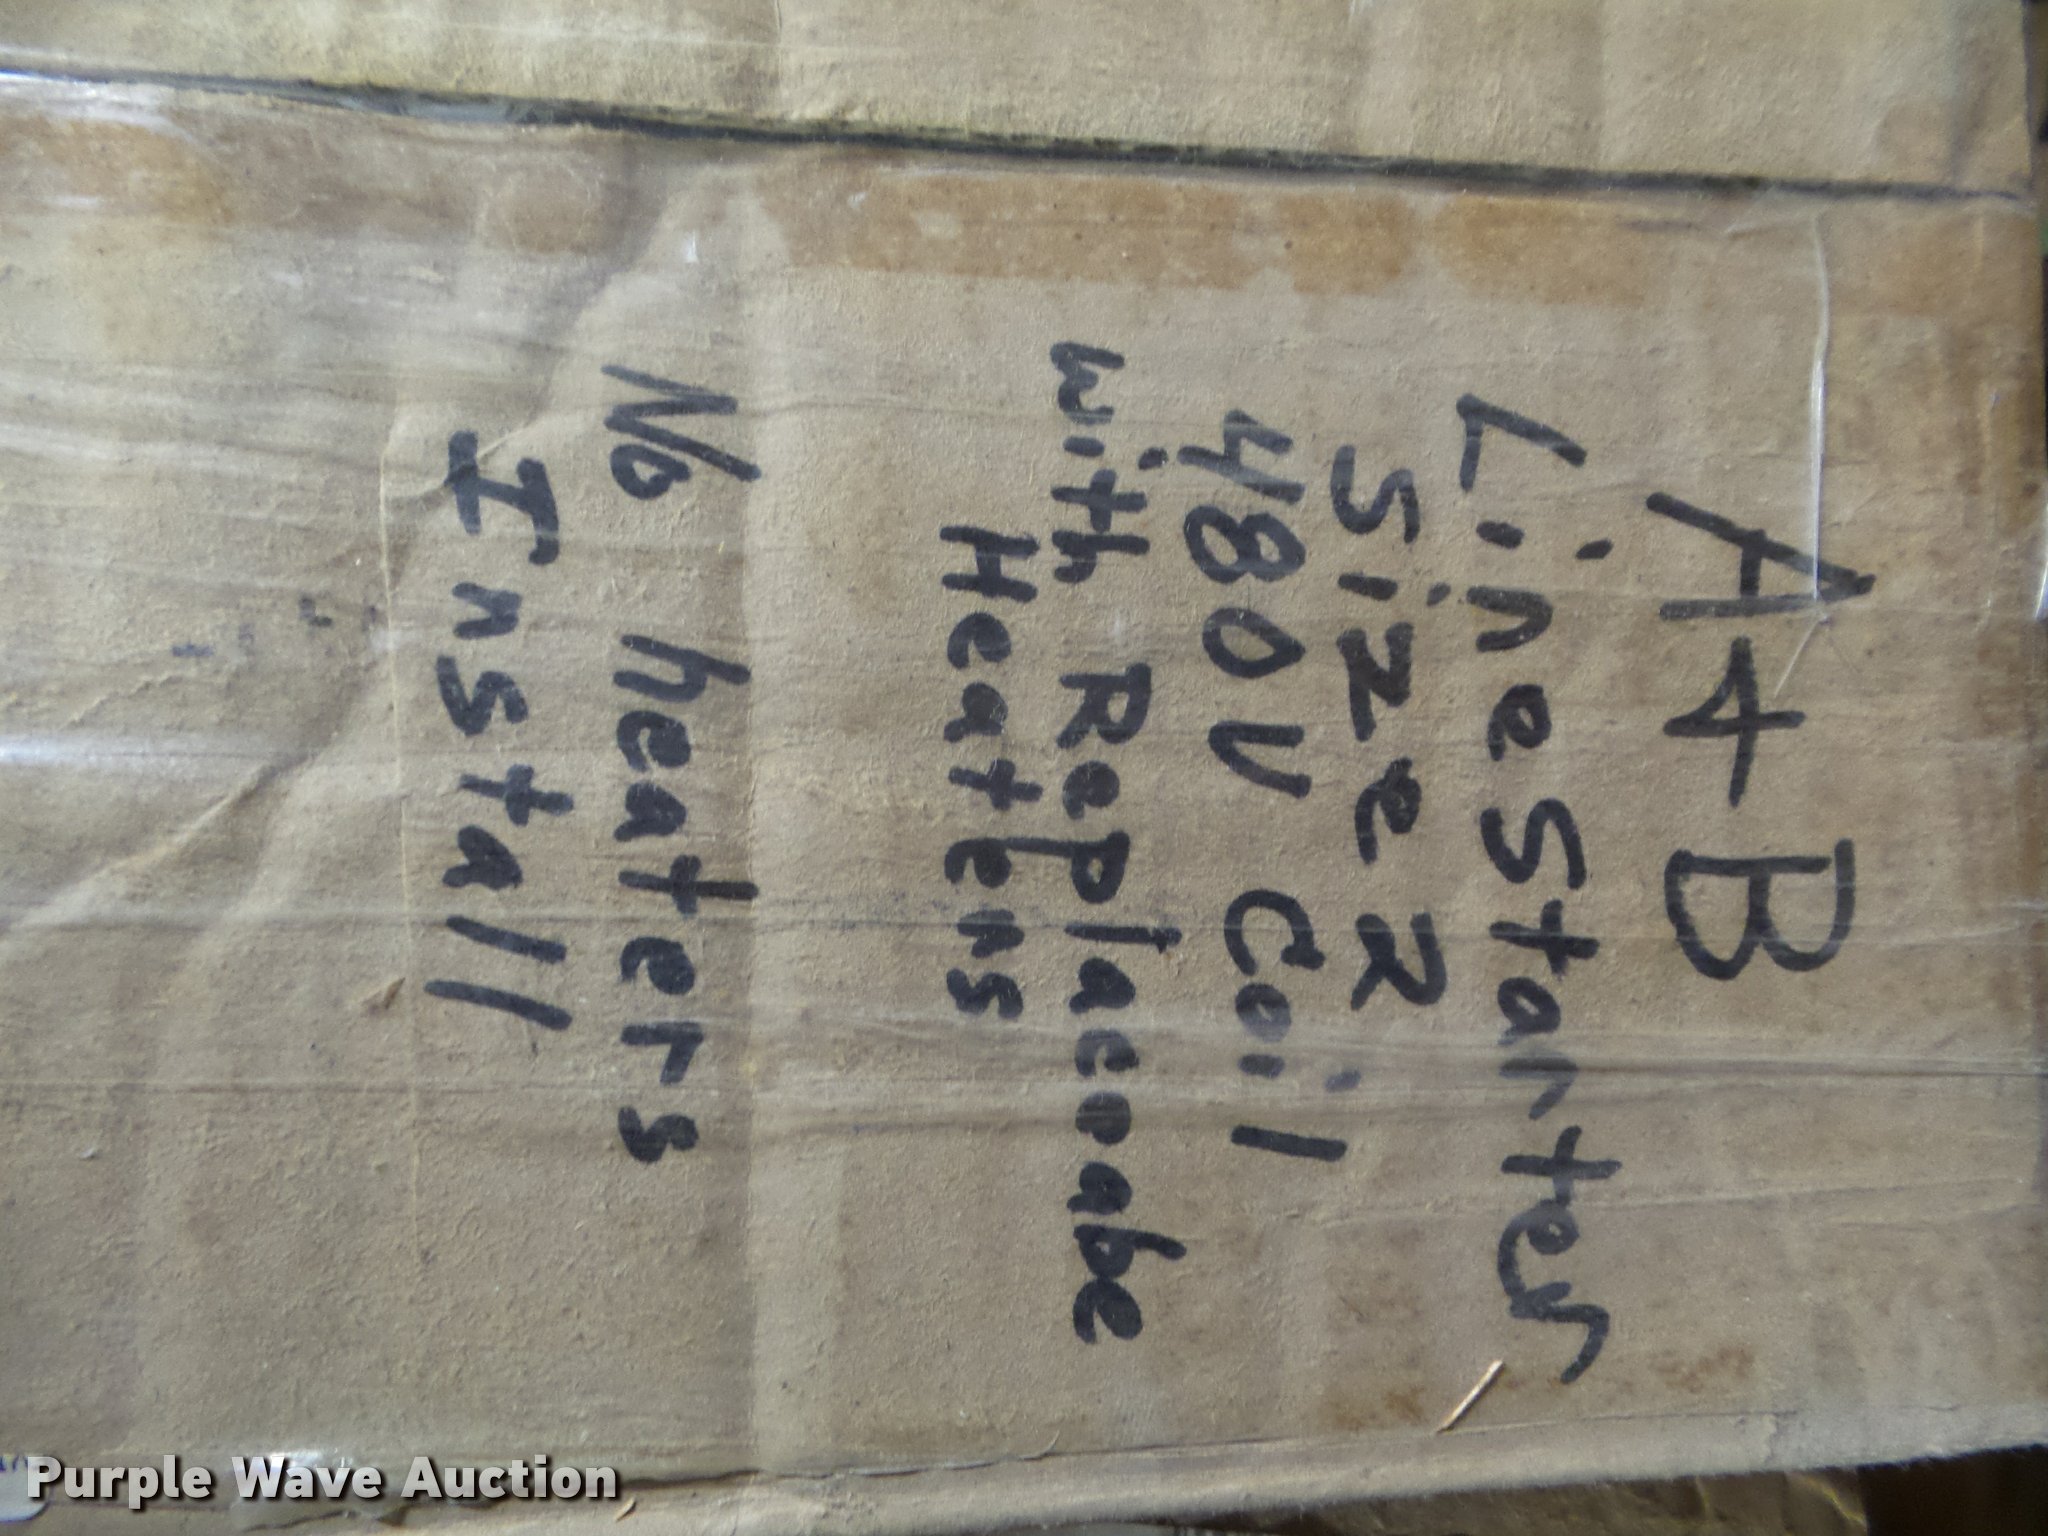 A + B
Line Starter
Size 2
480V Coil
with Replaceabe
Heaters
No heaters
Install
Purple Wave Auction